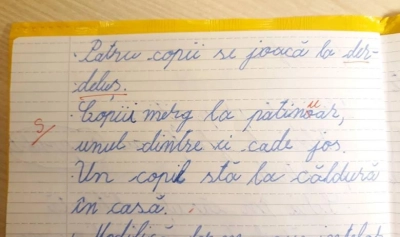 · Patru copii se joacă la der-
deluș.
· Copiii merg la patinuoar,
unul dintre ei cade jos.
· Un copil stă la căldură
în casă.